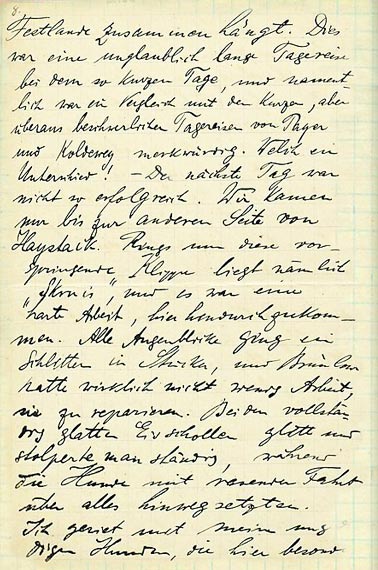 8.
Festlande zusammen hängt. Dies
war eine unglaublich lange Tagereise
bei dem so kurzen Tage, und nament-
lich war ein Vergleich mit den kurzen, aber
überaus beschwerlichen Tagereisen von Payer
und Koldewey merkwürdig. Welch ein
Unterschied! – Der nächste Tag war
nicht so erfolgreich. Wir kamen
nur bis zur anderen Seite von
Haystack. Rings um diese vor-
springende Klippe liegt nämlich
„Skruis", und es war eine
harte Arbeit, hier hindurchzukom-
men. Alle Augenblicke ging ein
Schlitten in Stücke, und
hatte wirklich nicht wenig Arbeit,
sie zu reparieren. Bei den vollstän-
dig glatten Eisschollen glitt und
stolperte man ständig, während
die Hunde mit rasender Fahrt
über alles hinweg setzten.
Ich geriet mit meinen
Hunden, die hier beson